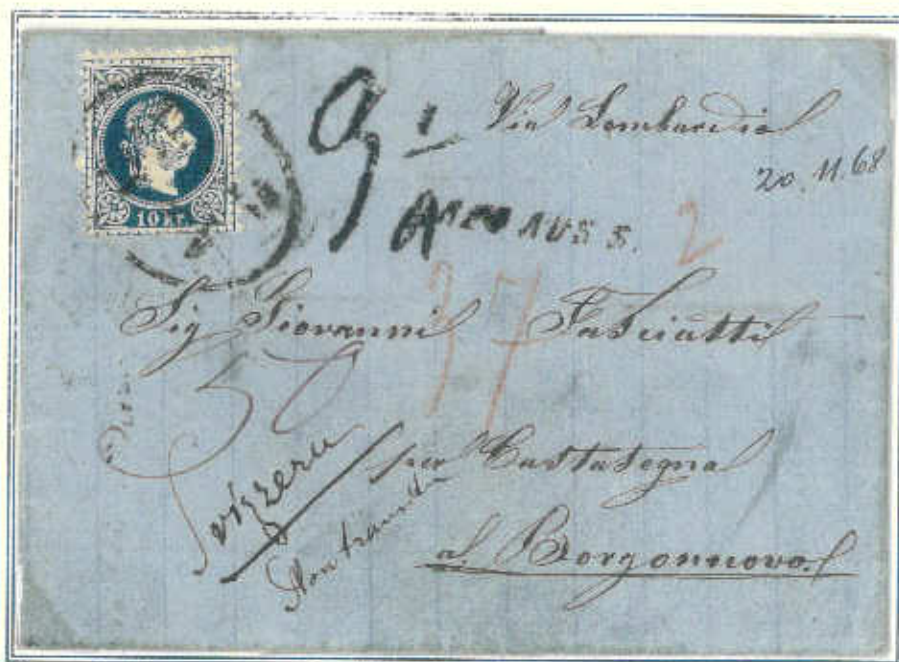 10 Kr.
9
1
Via Lombardia
20.11.68
2
37
Sig Giovanni Fasciatti
30
Svizzera
per Castasegna
al Borgonuovo.